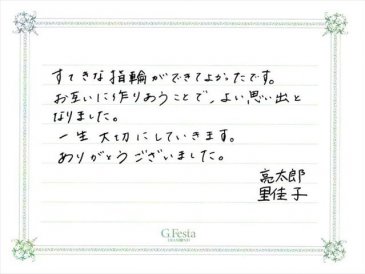 すてきな指輪ができてよかったです。
お互いに作りあうことで、よい思い出と
なりました。
一生大切にしていきます。
ありがとうございました。
亮太郎
里佳子
G.Festa